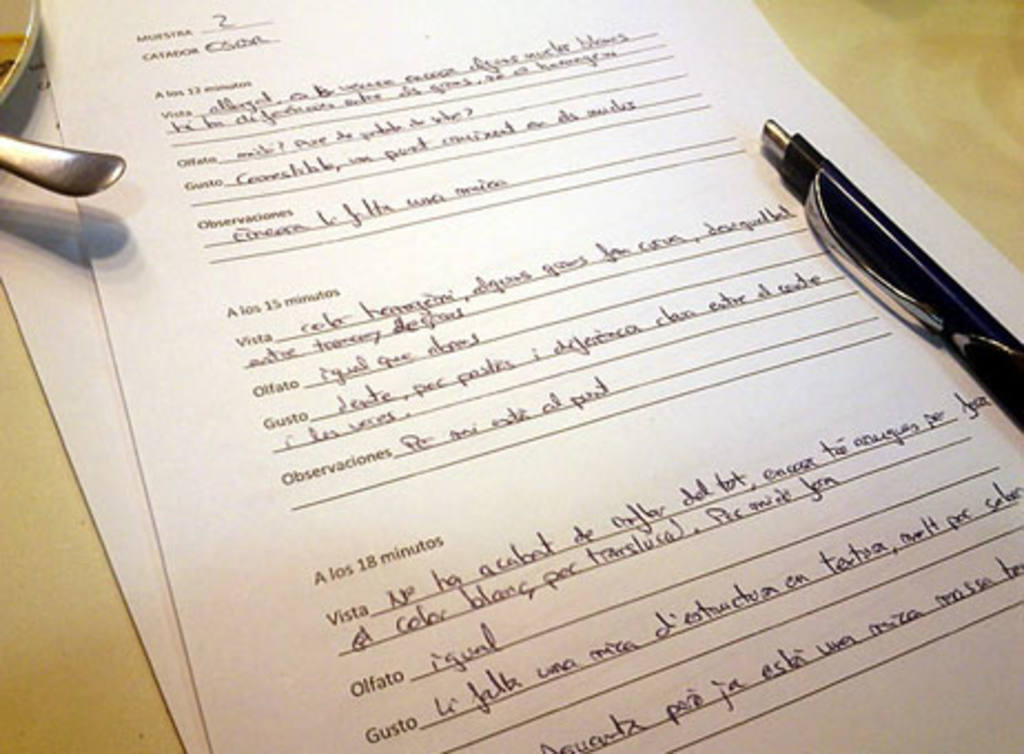 MUESTRA 2
CATADOR
A los 12 minutos
Vista allargat, es veuen encara alguns nuclis blancs
hi ha diferències entre els grans, no és homogeni
Olfato
Gusto Comestible, un punt cruixent en els nuclis
Observaciones
encara li falta una mica
A los 15 minutos
Vista color homogeni, alguns grans fan corva, desigualtat
entre trencats,
Olfato igual que abans
Gusto dente, poc pastós i diferència clara entre el centre
i les vores.
Observaciones Per mi està al punt
A los 18 minutos
Vista No ha acabat de inflar del tot, encara té arrugues per fora
el color blanc, poc translúcid. Poc unit fora
Olfato igual
Gusto li falta una mica d'estructura en textura, molt poc sabor
però ja està una mica massa